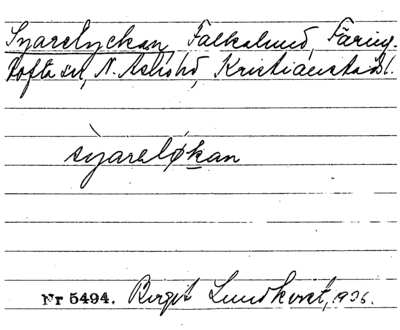 Syarelyckan, Falkalund, Färing-
tofta sn, N. Åsbo hd, Kristianstads l.
syareløkan
Nr 5494. Birgit Lundkvist, 1936.